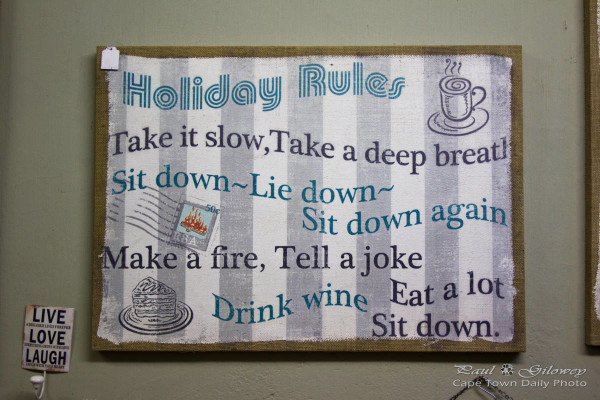 Holiday Rules
Take it slow, Take a deep breath
Sit down~Lie down~
Sit down again
Make a fire, Tell a joke
Eat a lot
Drink wine
Sit down.
LIVE
LOVE
LAUGH
Paul Gilowey
Cape Town Daily Photo